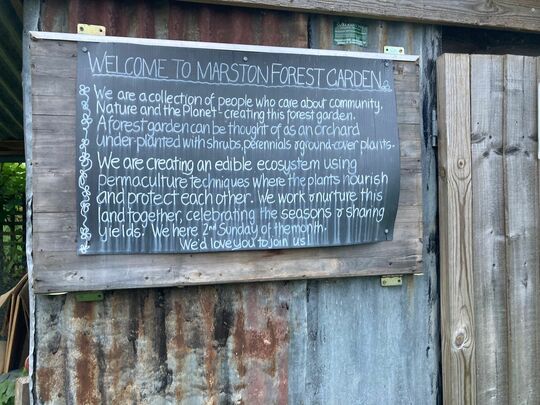 WELCOME TO MARSTON FOREST GARDEN
We are a collection of people who care about community,
Nature and the Planet - creating this forest garden.
A forest garden can be thought of as an orchard
under-planted with shrubs, perennials & ground-cover plants.
We are creating an edible ecosystem using
permaculture techniques where the plants nourish
and protect each other. We work & nurture this
land together, celebrating the seasons & sharing
yields. We here 2nd Sunday of the month.
We'd love you to join us!